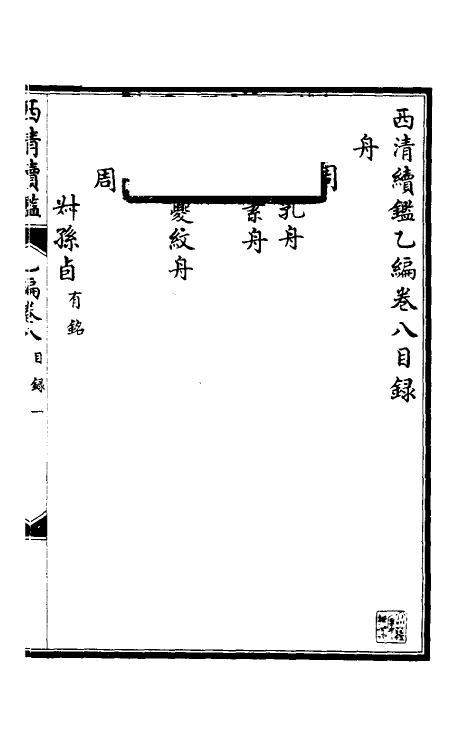 西清續鑑乙編卷八目録
舟
周
乳舟
素舟
夔紋舟
周
孫卣有銘
西清續鑑
乙編卷八
目録
一